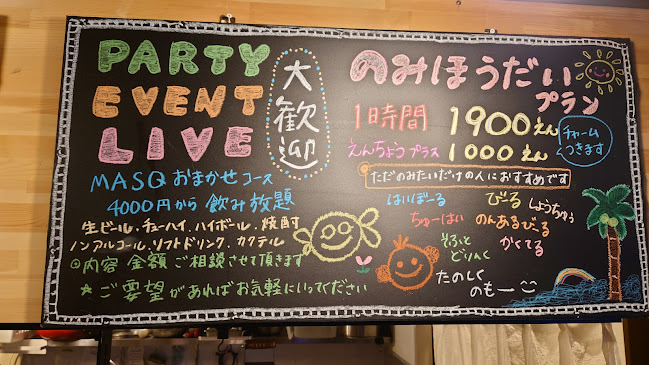 PARTY
EVENT
LIVE
大歓迎
MASQ おまかせコース
4000円から 飲み放題
生ビール、チューハイ、ハイボール、焼酎
ノンアルコール、ソフトドリンク、カクテル
◎内容 金額 ご相談させて頂きます
☆ご要望があればお気軽にいってください
のみほうだい
プラン
1時間 1900えん
えんちょうプラス 1000えん
チャーム
つきます
ただのみたいだけの人におすすめです
はいぼーる
びーる
しょうちゅう
ちゅーはい
のんあるびーる
そふと
どりんく
かくてる
たのしく
のもー